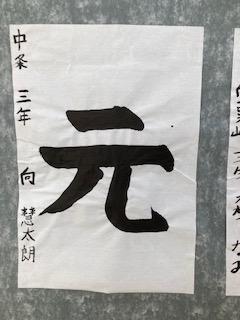 元
中条 三年 向 慧太朗